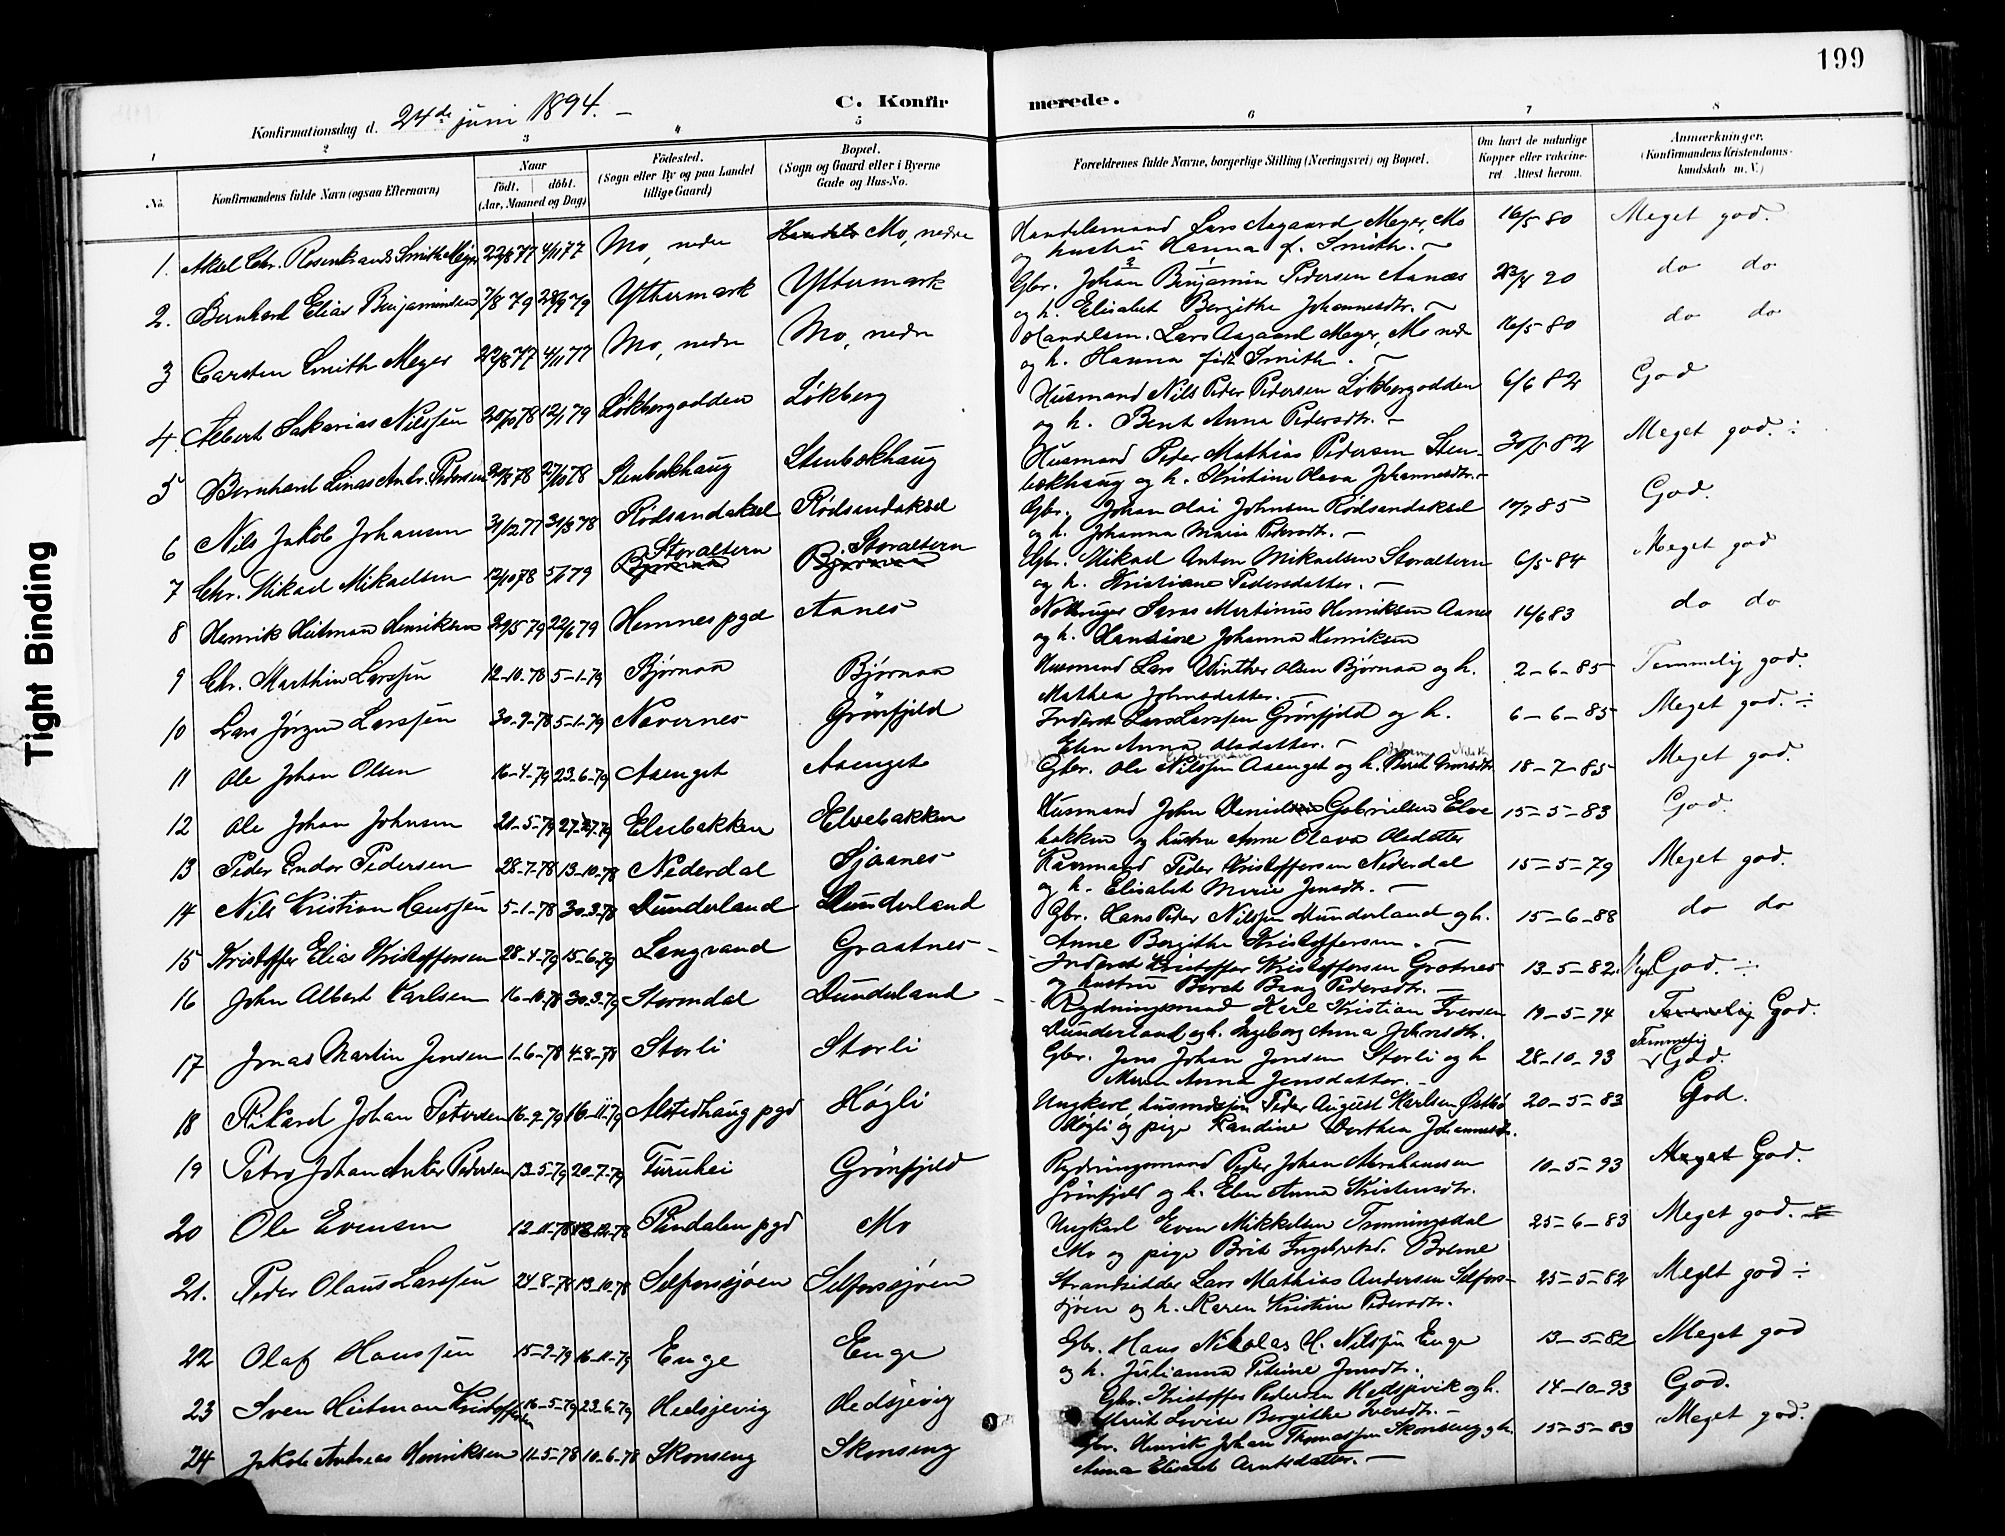 199
Konfirmationsdag d. 24de juni 1894. –
C. Konfirmerede.
1 2 3 4 5 6 7 8
No. Konfirmandens fulde Navn (ogsaa Efternavn) Naar født. døbt. (Aar, Maaned og Dag) Fødested. (Sogn eller By og paa Landet tillige Gaard) Bopæl. (Sogn og Gaard eller i Byerne Gade og Hus-No. Forældrenes fulde Navne, borgerlige Stilling (Næringsvei) og Bopæl. Om havt de naturlige Kopper eller vakcineret Attest herom. Anmærkninger. (Konfirmandens Kristendomskundskab m. V.)
1. Aksel Chr. Rosenkrands Smith Meyer 22/8 77 4/11 77 Mo, nedre Mo, nedre Handelsmand Lars Aagaard Meyer, Mo 16/5 80 Meget god.
og hustru Hanna f. Smith. –
2. Bernhard Elias Benjaminsen 7/8 79 28/9 79 Yttermark Yttermark Gbr. Johan Benjamin Pedersen Aanæs 20 do do
og h. Elisabet Bergithe Johannesdtr. –
3 Carsten Smith Meyer 22/8 77 4/11 77 Mo, nedre Mo, nedre Handelsm. Lars Aagaard Meyer, Mo nedr 16/5 80 do do
og h. Hanna født Smith. –
4. Albert Sakarias Nilssen 20/10 78 12/1 79 Løkbergodden Løkberg Husmand Nils Peder Pedersen Løkbergodden 6/6 82 God
og h. Bent Anna Pedersdtr. –
5 Bernhard Linas Andr. Pedersen 78 27/10 78 Stenbekhaug Stenbekhaug Husmand Peder Mathias Pedersen Sten- 30/5 82 Meget god. ÷
bekhaug og h. Kristine Olava Johannesdtr. –
6 Nils Jakob Johansen 31/12 77 31/3 78 Rødsandaksel Rødsandaksel Gbr. Johan Olai Johnsen Rødsandaksel 85 God.
og h. Johanna Marie Pedersdtr. –
7 Chr. Mikael Mikaelsen 12/10 78 5/1 79 Storaltern Storaltern Gbr. Mikael Anton Mikaelsen Storaltern 6/5 84 Meget god
og h. Kristiane Pedersdatter. –
8 Henrik Hutman Henriksen 29/5 79 22/6 79 Hemnes pgd Aanes Notbruger Martinus Henriksen Aanes 16/6 83 do do
og h. Hansine Johanna Henriksen
9 Chr. Marthin Larssen 12-10-78 5-1-79 Bjørnaa Bjørnaa Husmand Lars Winther Olsen Bjørnaa og h. 2-6-85 Temmelig god.
Mathea Johnsdatter. –
10 Lars Jørgen Larssen 30-9-78 5-1-79 Nævernes Grønfjeld Inderst Lars Larssen Grønfjeld og h. 6-6-85 Meget god. ÷
Elen Anna Olsdatter. –
11 Ole Johan Olsen 16-4-79 23-6-79 Asenget Asenget Gbr. Ole Nilssen Asenget og h. Berit 18-7-85 Meget god.
12 Ole Johan Johnsen 21-5-79 27-7-79 Elvebakken Elvebakken Husmand John Gabrielsen Elve 15-5-83 God.
bakken og hustru Anne Olava Olsdatter
13 Peder Endor Pedersen 28-7-78 13-10-78 Nederdal Sjaanes Kaarmand Peder Kristoffersen Nederdal 15-5-79 Meget god.
og h. Elisabet Marie Jensdtr. –
14 Nils Kristian Hanssen 5-1-78 30-3-78 Dunderland Dunderland Gbr. Hans Peder Nilssen Dunderland og h. 15-6-88 do do
Anne Bergithe Kristoffersen. –
15 Kristoffer Elias Kristoffersen 28-4-79 15-6-79 Langvand Graatnes – Inderst Kristoffer Kristoffersen Grotnes 13-5-82 God. ÷
og hustru Beret Pedersdtr. –
16 John Albert Karlsen 16-10-78 30-3-79 Stormdal Dunderland – Rydningsmand Karl Kristian Iversen 19-5-94 Temmelig God.
Dunderland og h. Ingeborg Anna Johnsdtr.
17 Jonas Martin Jensen 1-6-78 4-8-78 Storli Storli Gbr. Jens Johan Jensen Storli og h 28-10-93 Temmelig God.
Maren Anna Jensdatter. –
18 Rikard Johan Petersen 16-9-79 16-11-79 Alstedhaug pgd Høgli Ungkarl, husmdssøn Peder August Karlsen 20-5-83 God.
Høgli og pige Randine Dorthea Johannesdtr.
19 Petro Johan Anton Pedersen 13-5-79 20-7-79 Furuhei Grønfjeld Rydningsmand Peder Johan Abrahamsen 10-5-93 Meget God.
Grønfjeld og h. Elen Anna Kristensdtr.
20 Ole Evensen 12-11-78 12-78 Rindalen pgd Mo Ungkarl Even Mikkelsen Trønningsdal 25-6-83 Meget god.
Mo og pige Brit Ingebretsd. Bolme
21. Peder Olaus Larssen 24-8-78 13-10-78 Selforssjøen Selforssjøen Strandsidder Lars Mathias Andersen Selfors- 25-5-82 Meget god ÷
sjøen og h. Maren Kristine Pedersdtr.
22 Olaf Hanssen 15-9-79 16-11-79 Enge Enge Gbr. Hans Nikolas H. Nilssen Enge 13-5-82 Meget god
og h. Julianna Petrine Jensdtr.
23 Sven Hutman Kristoffersen 16-5-79 23-6-79 Hedsjevig Hedsjevig Gbr. Kristoffer Pedersen Hedsjevik og h. 14-10-93 God.
Lovise Bergithe Iversdtr. –
24 Jakob Andreas Henriksen 11-5-78 10-6-78 Skonseng Skonseng Gbr. Henrik Johan Thomassen Skonseng og h. 15-5-83 Meget god.
Anna Elisabet Arntsdatter. –
Tight Binding